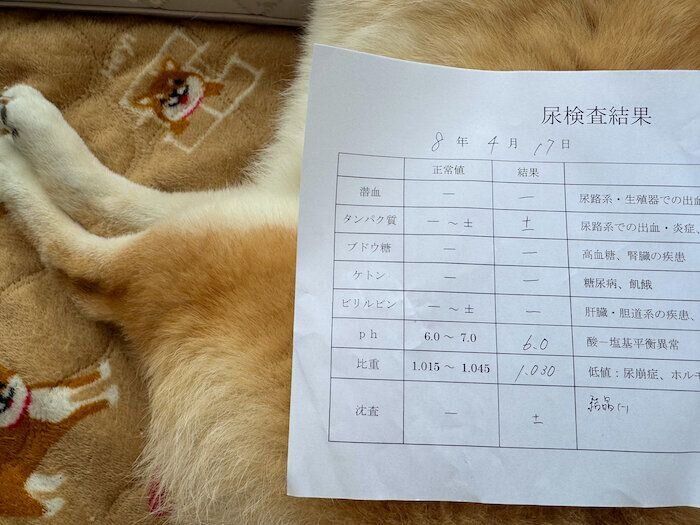 尿検査結果
8 年 4 月 17 日
正常値 結果
潜血 — — 尿路系・生殖器での出血
タンパク質 — ～ ± ± 尿路系での出血・炎症、
ブドウ糖 — — 高血糖、腎臓の疾患
ケトン — — 糖尿病、飢餓
ビリルビン — ～ ± — 肝臓・胆道系の疾患、
ph 6.0 ～ 7.0 6.0 酸－塩基平衡異常
比重 1.015 ～ 1.045 1.030 低値：尿崩症、ホルモ
沈査 — ± 結晶(-)